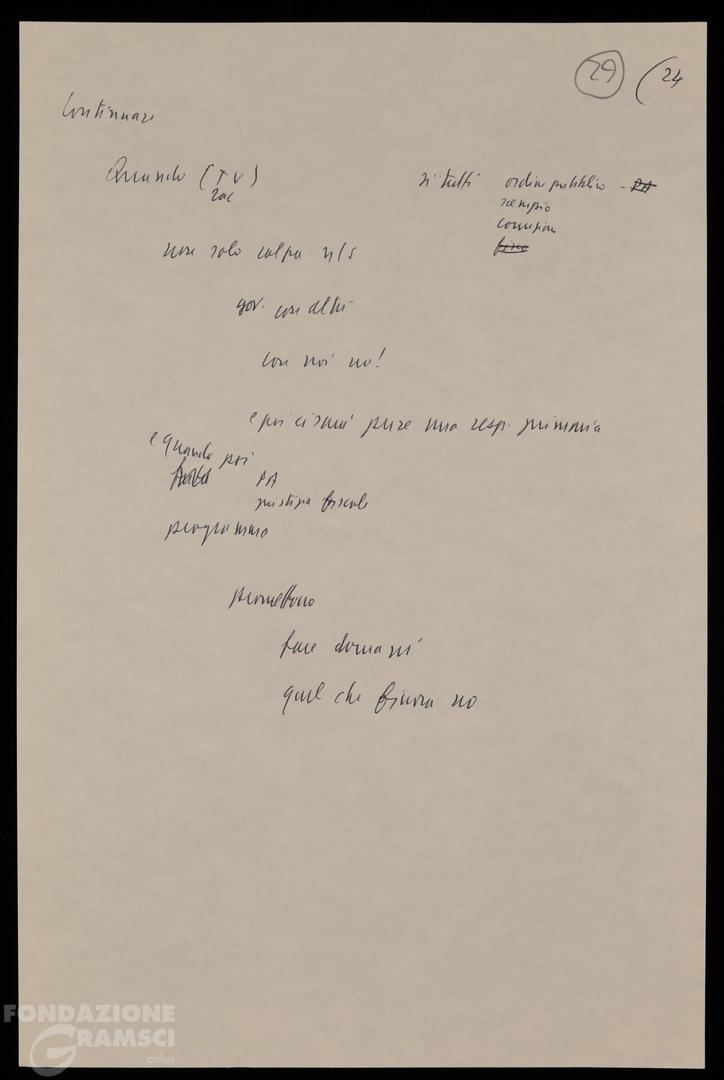 29 (24
Continuare
Quando (TV) si tutti ordine pubblico - PA
zac
scempio
corruzione
fisco
non solo colpa n/s
gov. con altri
con noi no!
e poi ci sarà pure una resp. primaria
e quando poi
PA
giustizia fiscale
programma
promettono
fare domani
quel che finora no
FONDAZIONE
GRAMSCI
onlus